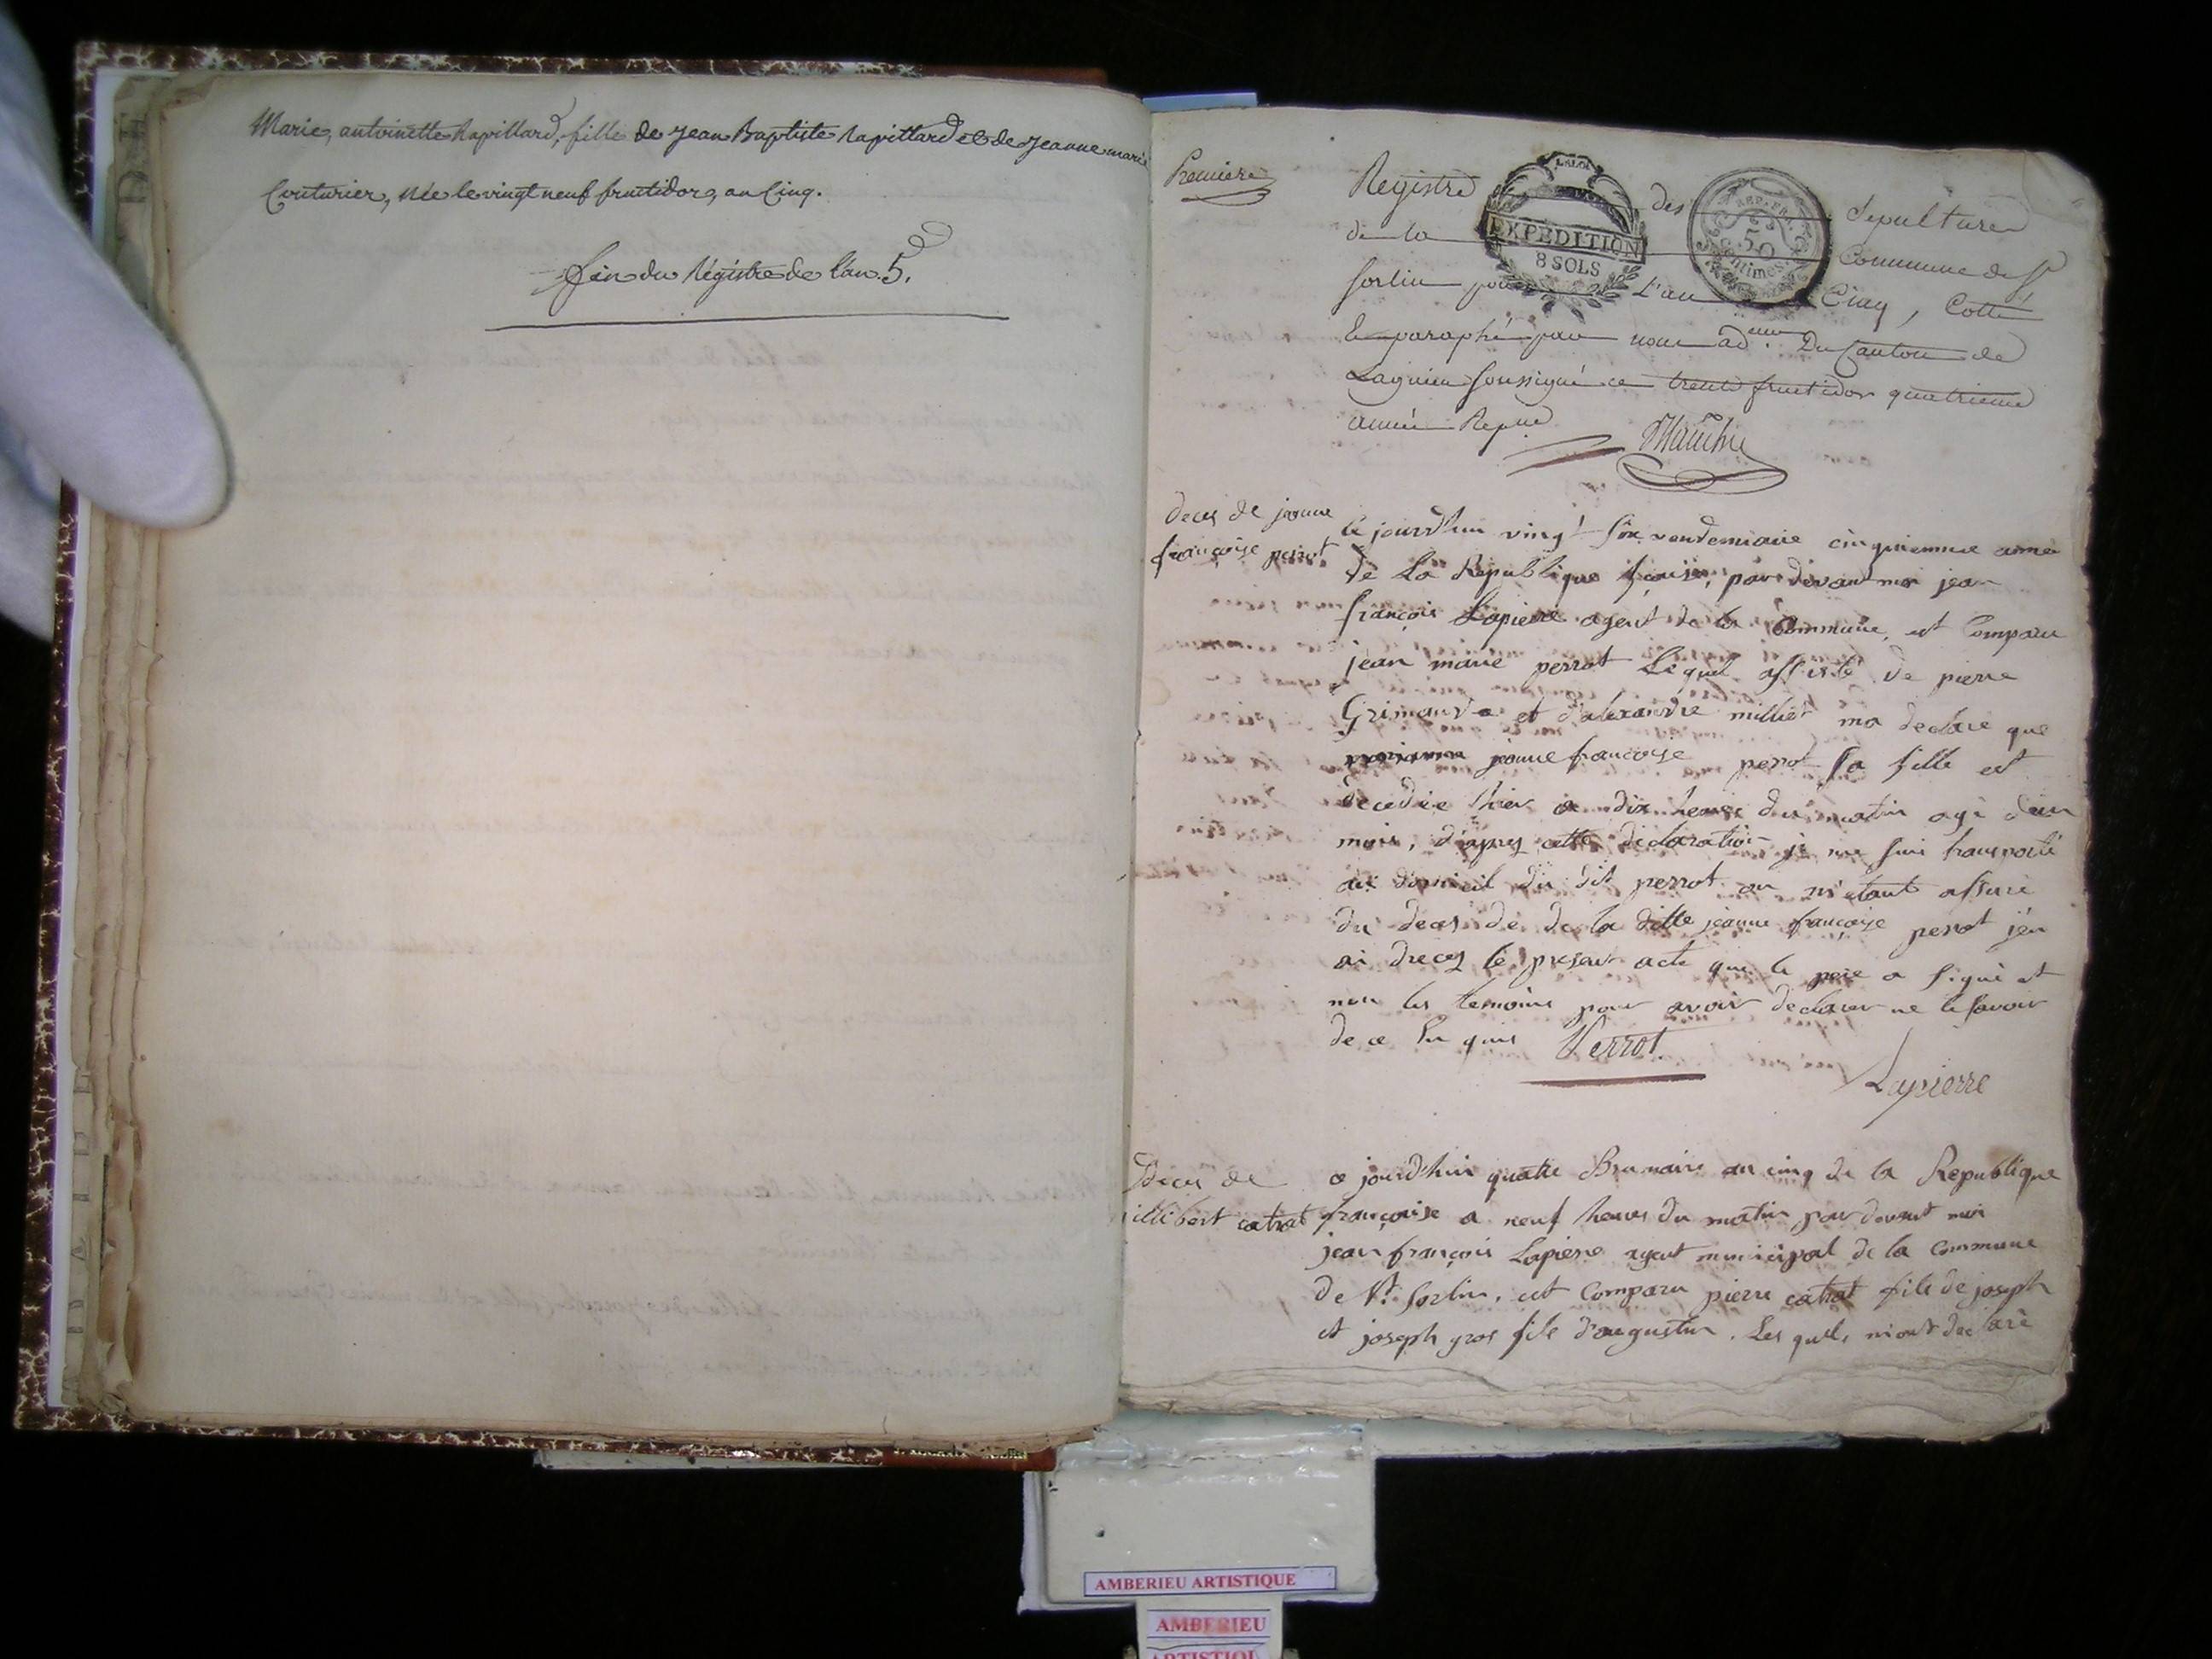 Marie, antoinette Rapillard, fille de Jean Baptiste Rapillard et de Jeanne marie
Couturier, née le vingt neuf fructidor, an Cinq.
fin du Régistre de l'an 5.
Premiere
Registre des Sepultures
de la Commune de St
Sorlin pour L'an Cinq, Cotté
& paraphé par nous adeur. Du Canton de
Lagnieu soussigné ce trente fructidor quatrieme
année Repue
LA LOI
EXPÉDITION
8 SOLS
REP. FRA.
50
centimes
deces de jeanne
françoise perrot
ce jourdhui vingt six vendemiaire cinquiemme anné
de La Republique fcaise, par devant moi jean
françois Lapierre agent de la Commune, est Comparu
jean marie perrot Lequel assisté de pierre
Grimaud et d'alexandre millier ma declaré que
jeanne francoise perrot sa fille est
decedée hier a dix heures du matin agé d'un
mois, d'apres cette declaration je me suis transporté
au domicil du dit perrot ou m'etant assuré
du deces de de la ditte jeanne françoise perrot j'en
ai drecez le present acte que le pere a signé et
non les temoins pour avoir declarer ne le savoir
de ce Enquis Perrot
Lapierre
Deces de
catrat
ce jourd'hui quatre Brumaire an cinq de la Republique
françoise a neuf heures du matin par devant moi
jean françois Lapierre agent municipal de la Commune
de St. Sorlin, est Comparu pierre catrat fils de joseph
et joseph gros fils d'augustin. Les quels, m'ont declaré
AMBERIEU ARTISTIQUE
AMBERIEU
ARTISTIQU